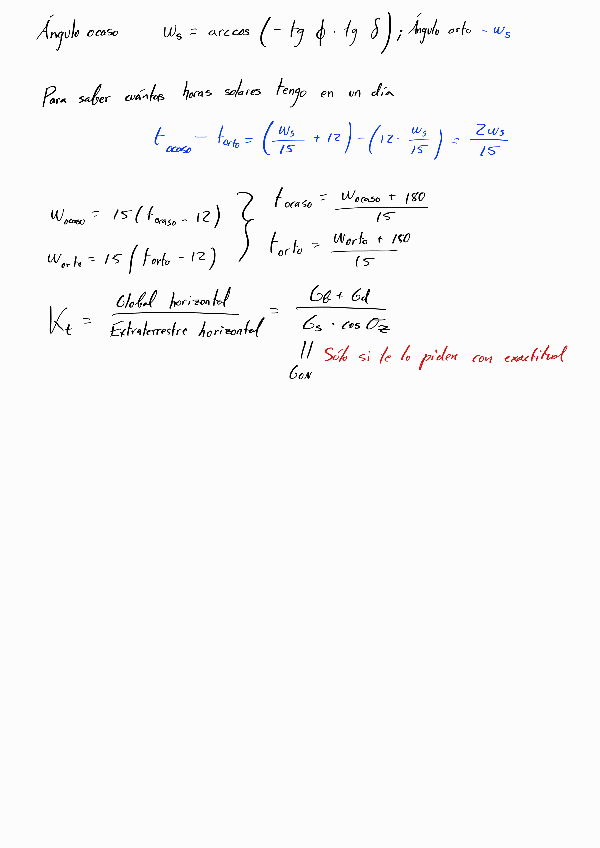 Ángulo ocaso ws = arccos (- tg ϕ · tg δ); Ángulo orto - ws
Para saber cuántas horas solares tengo en un día
t ocaso - t orto = (ws/15 + 12) - (12 - ws/15) = 2ws/15
wocaso = 15(tocaso - 12) } tocaso = (wocaso + 180)/15
worto = 15(torto - 12) } torto = (worto + 180)/15
Kt = Global horizontal / Extraterrestre horizontal = (GB + Gd) / (Gs · cos θz)
|| Sólo si te lo piden con exactitud
GON